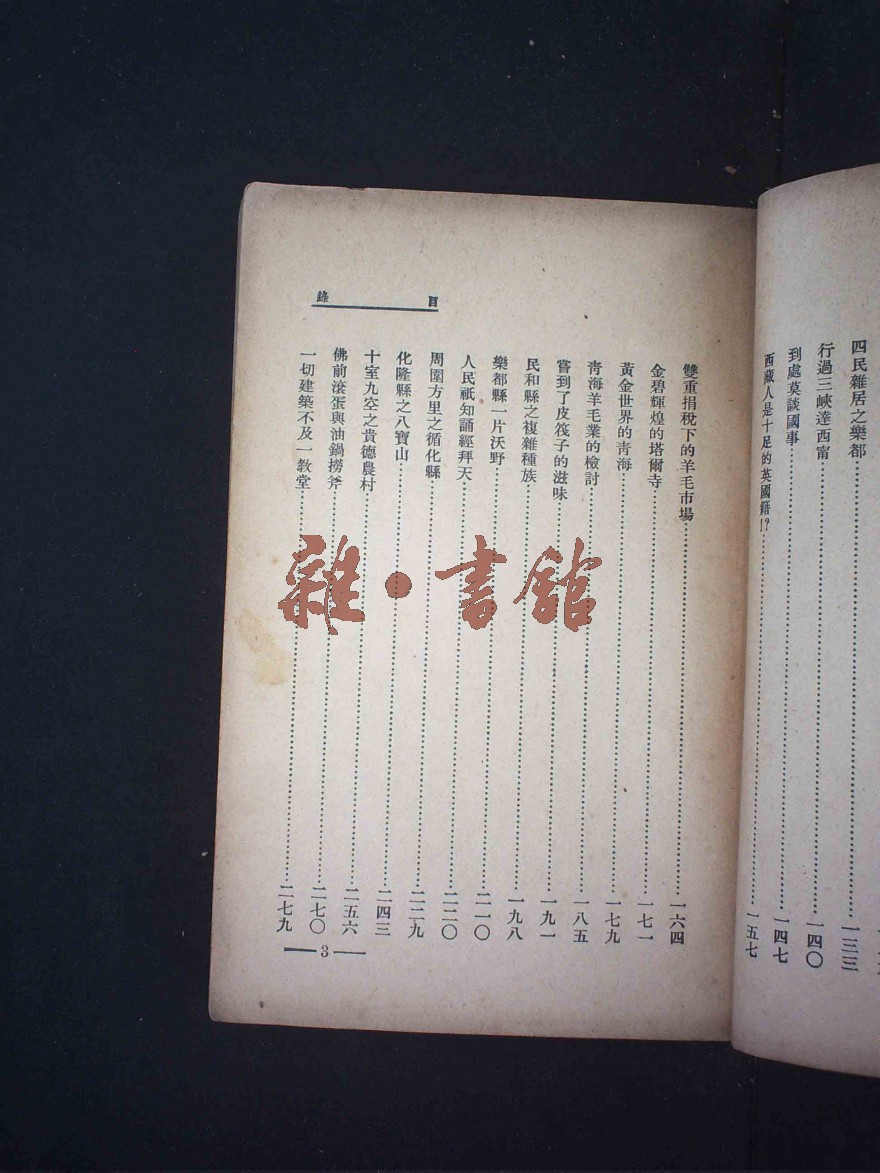 四民雜居之樂都……一三三
行過三峽達西甯……一四〇
到處莫談國事……一四七
西藏人是十足的英國籍!?……一五七
目錄
雙重捐稅下的羊毛市場……一六四
金碧輝煌的塔爾寺……一七一
黃金世界的青海……一七九
青海羊毛業的檢討……一八五
嘗到了皮筏子的滋味……一九一
民和縣之複雜種族……一九八
樂都縣一片沃野……二一〇
人民祇知誦經拜天……二二〇
周圍方里之循化縣……二二九
化隆縣之八寶山……二四三
十室九空之貴德農村……二五六
佛前滾蛋與油鍋撈斧……二七〇
一切建築不及一教堂……二七九
— 3 —
雜·書館